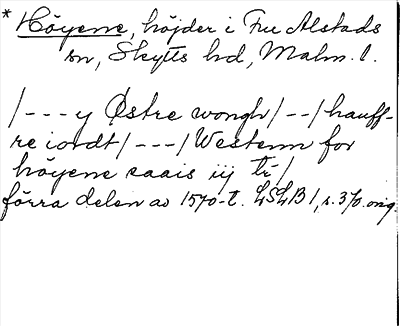 * Höyene, höjder i Fru Alstads
sn, Skytts hd, Malm. l.
/---y Østre wongh/--/hauff-
re iordt/---/Westenn for
höyene saais iij ti/
förra delen av 1570-t. LSLB 1, s. 370. orig.